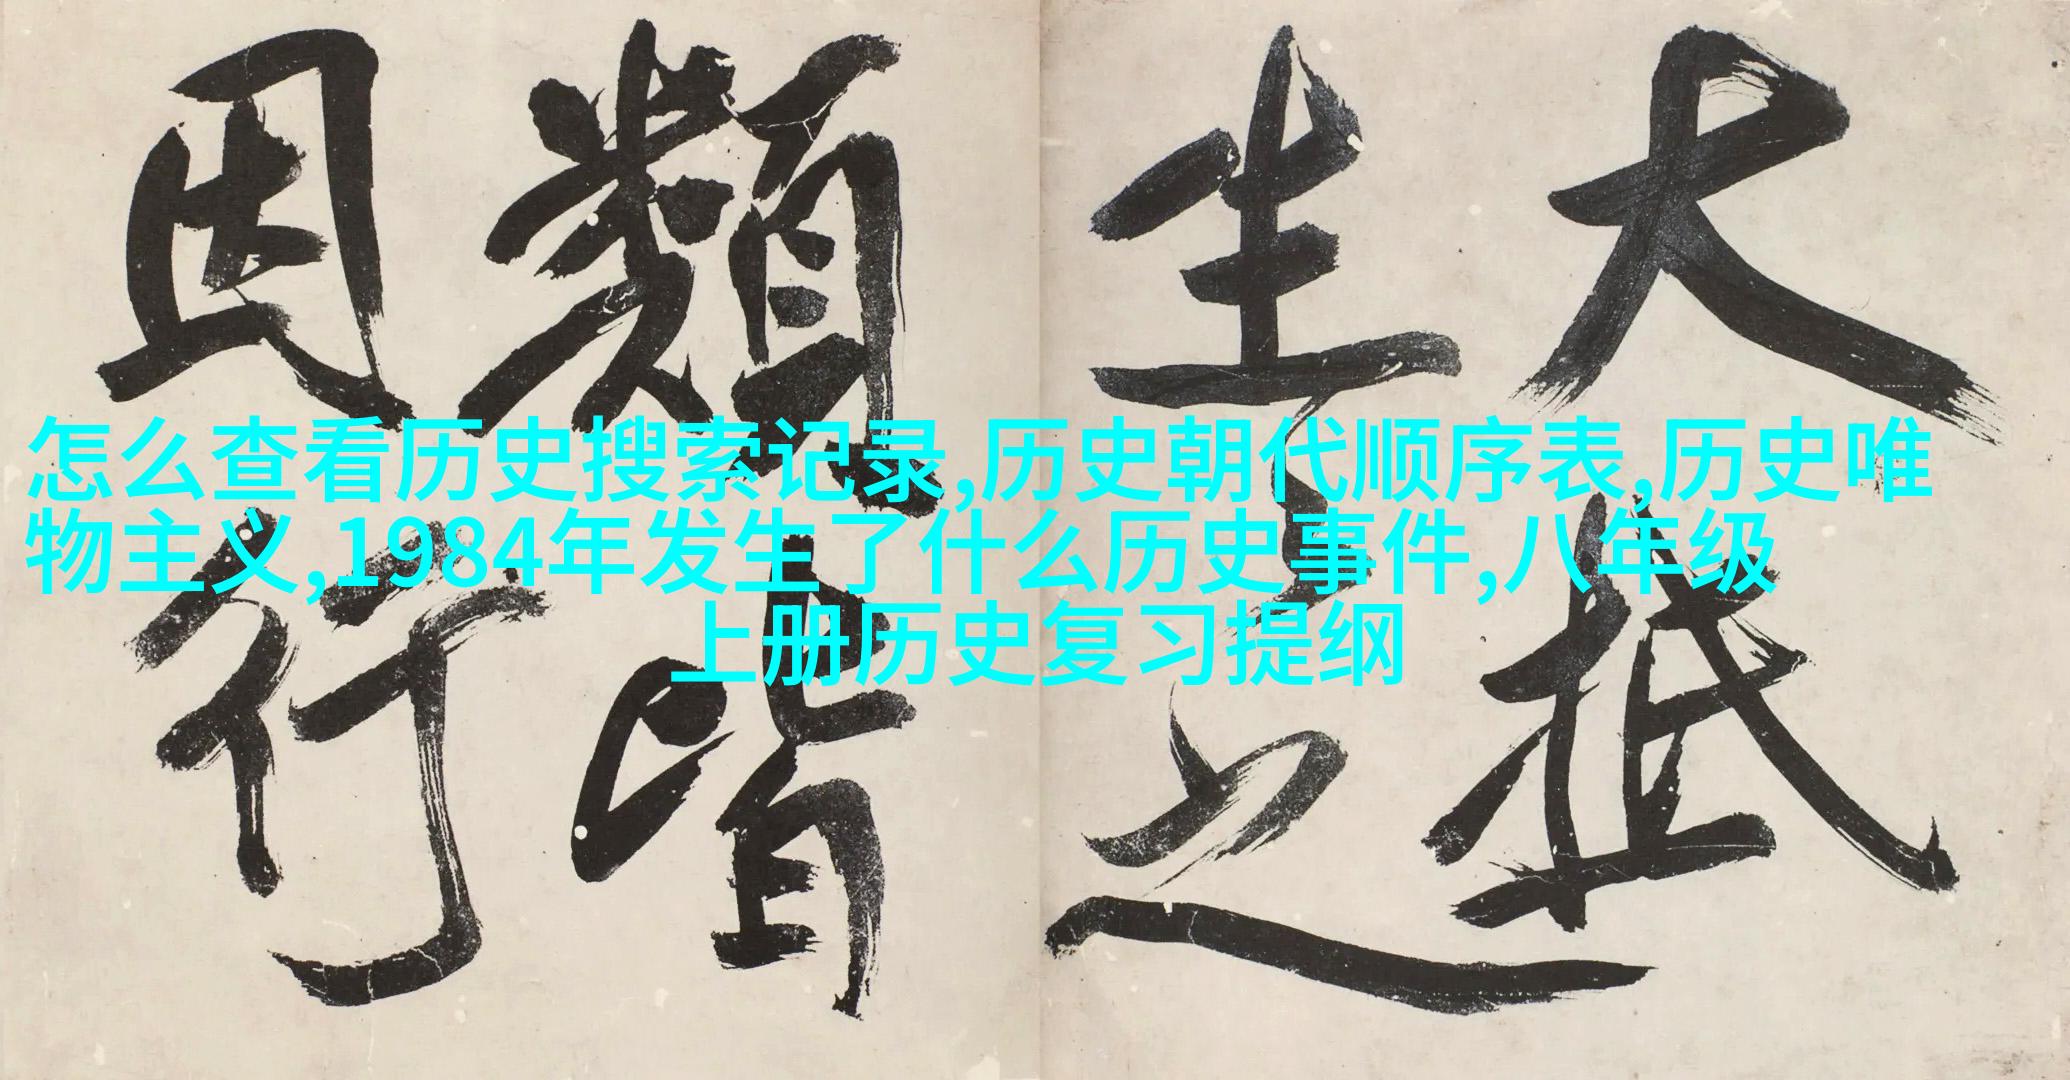 大抵
生之
類皆
因行
怎么查看历史搜索记录,历史朝代顺序表,历史唯
物主义,1984年发生了什么历史事件,八年级
上册历史复习提纲